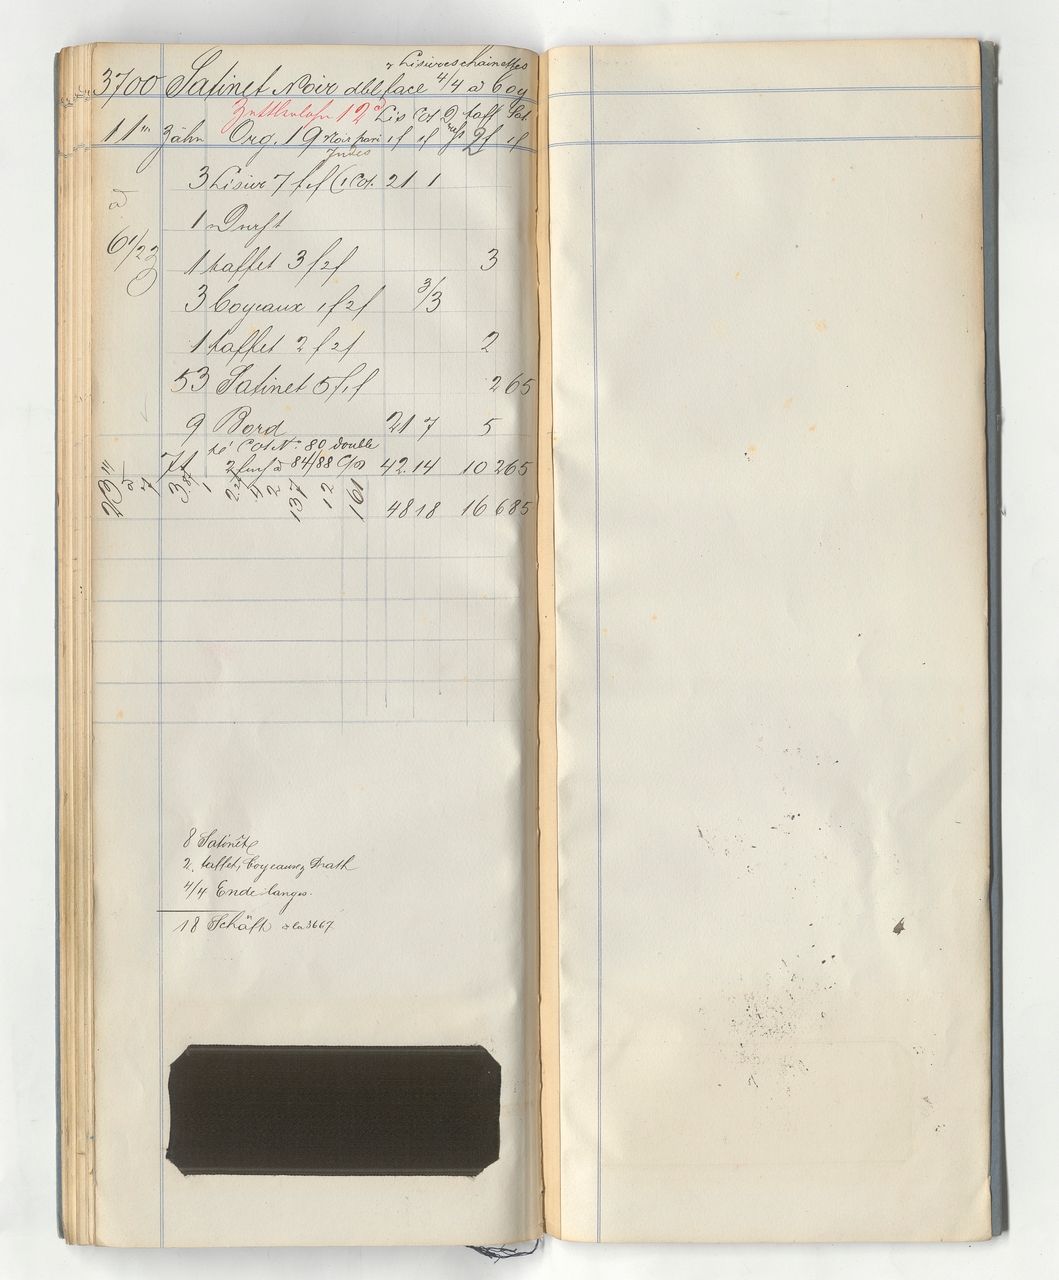 Lisières chainettes
3700 Satinet Noir dbl face 4/4 a boy
12 Lis Cot taff Sat
11''' Zähn Org. 19 Noir pari 1f 1f 2f 1f
3 Lisier 7 f 1f (1 Cot. 21 1
a
1 Draht
6 1/2
1 taffet 3 f 2f 3
3 boyeaux 1f 2f 3/3
1 taffet 2 f 2f 2
53 Satinet 5 f 1f 265
9 Bord 21 7 5
Cot No. 80 double
71 2 fach a 84/88 42. 14 10 265
3 1 2 2 137 12 161
48 18 16 685
8 Satinet
2. taffet, boyeaux, Drath
4/4 Ende langes.
18 Schäft 3667